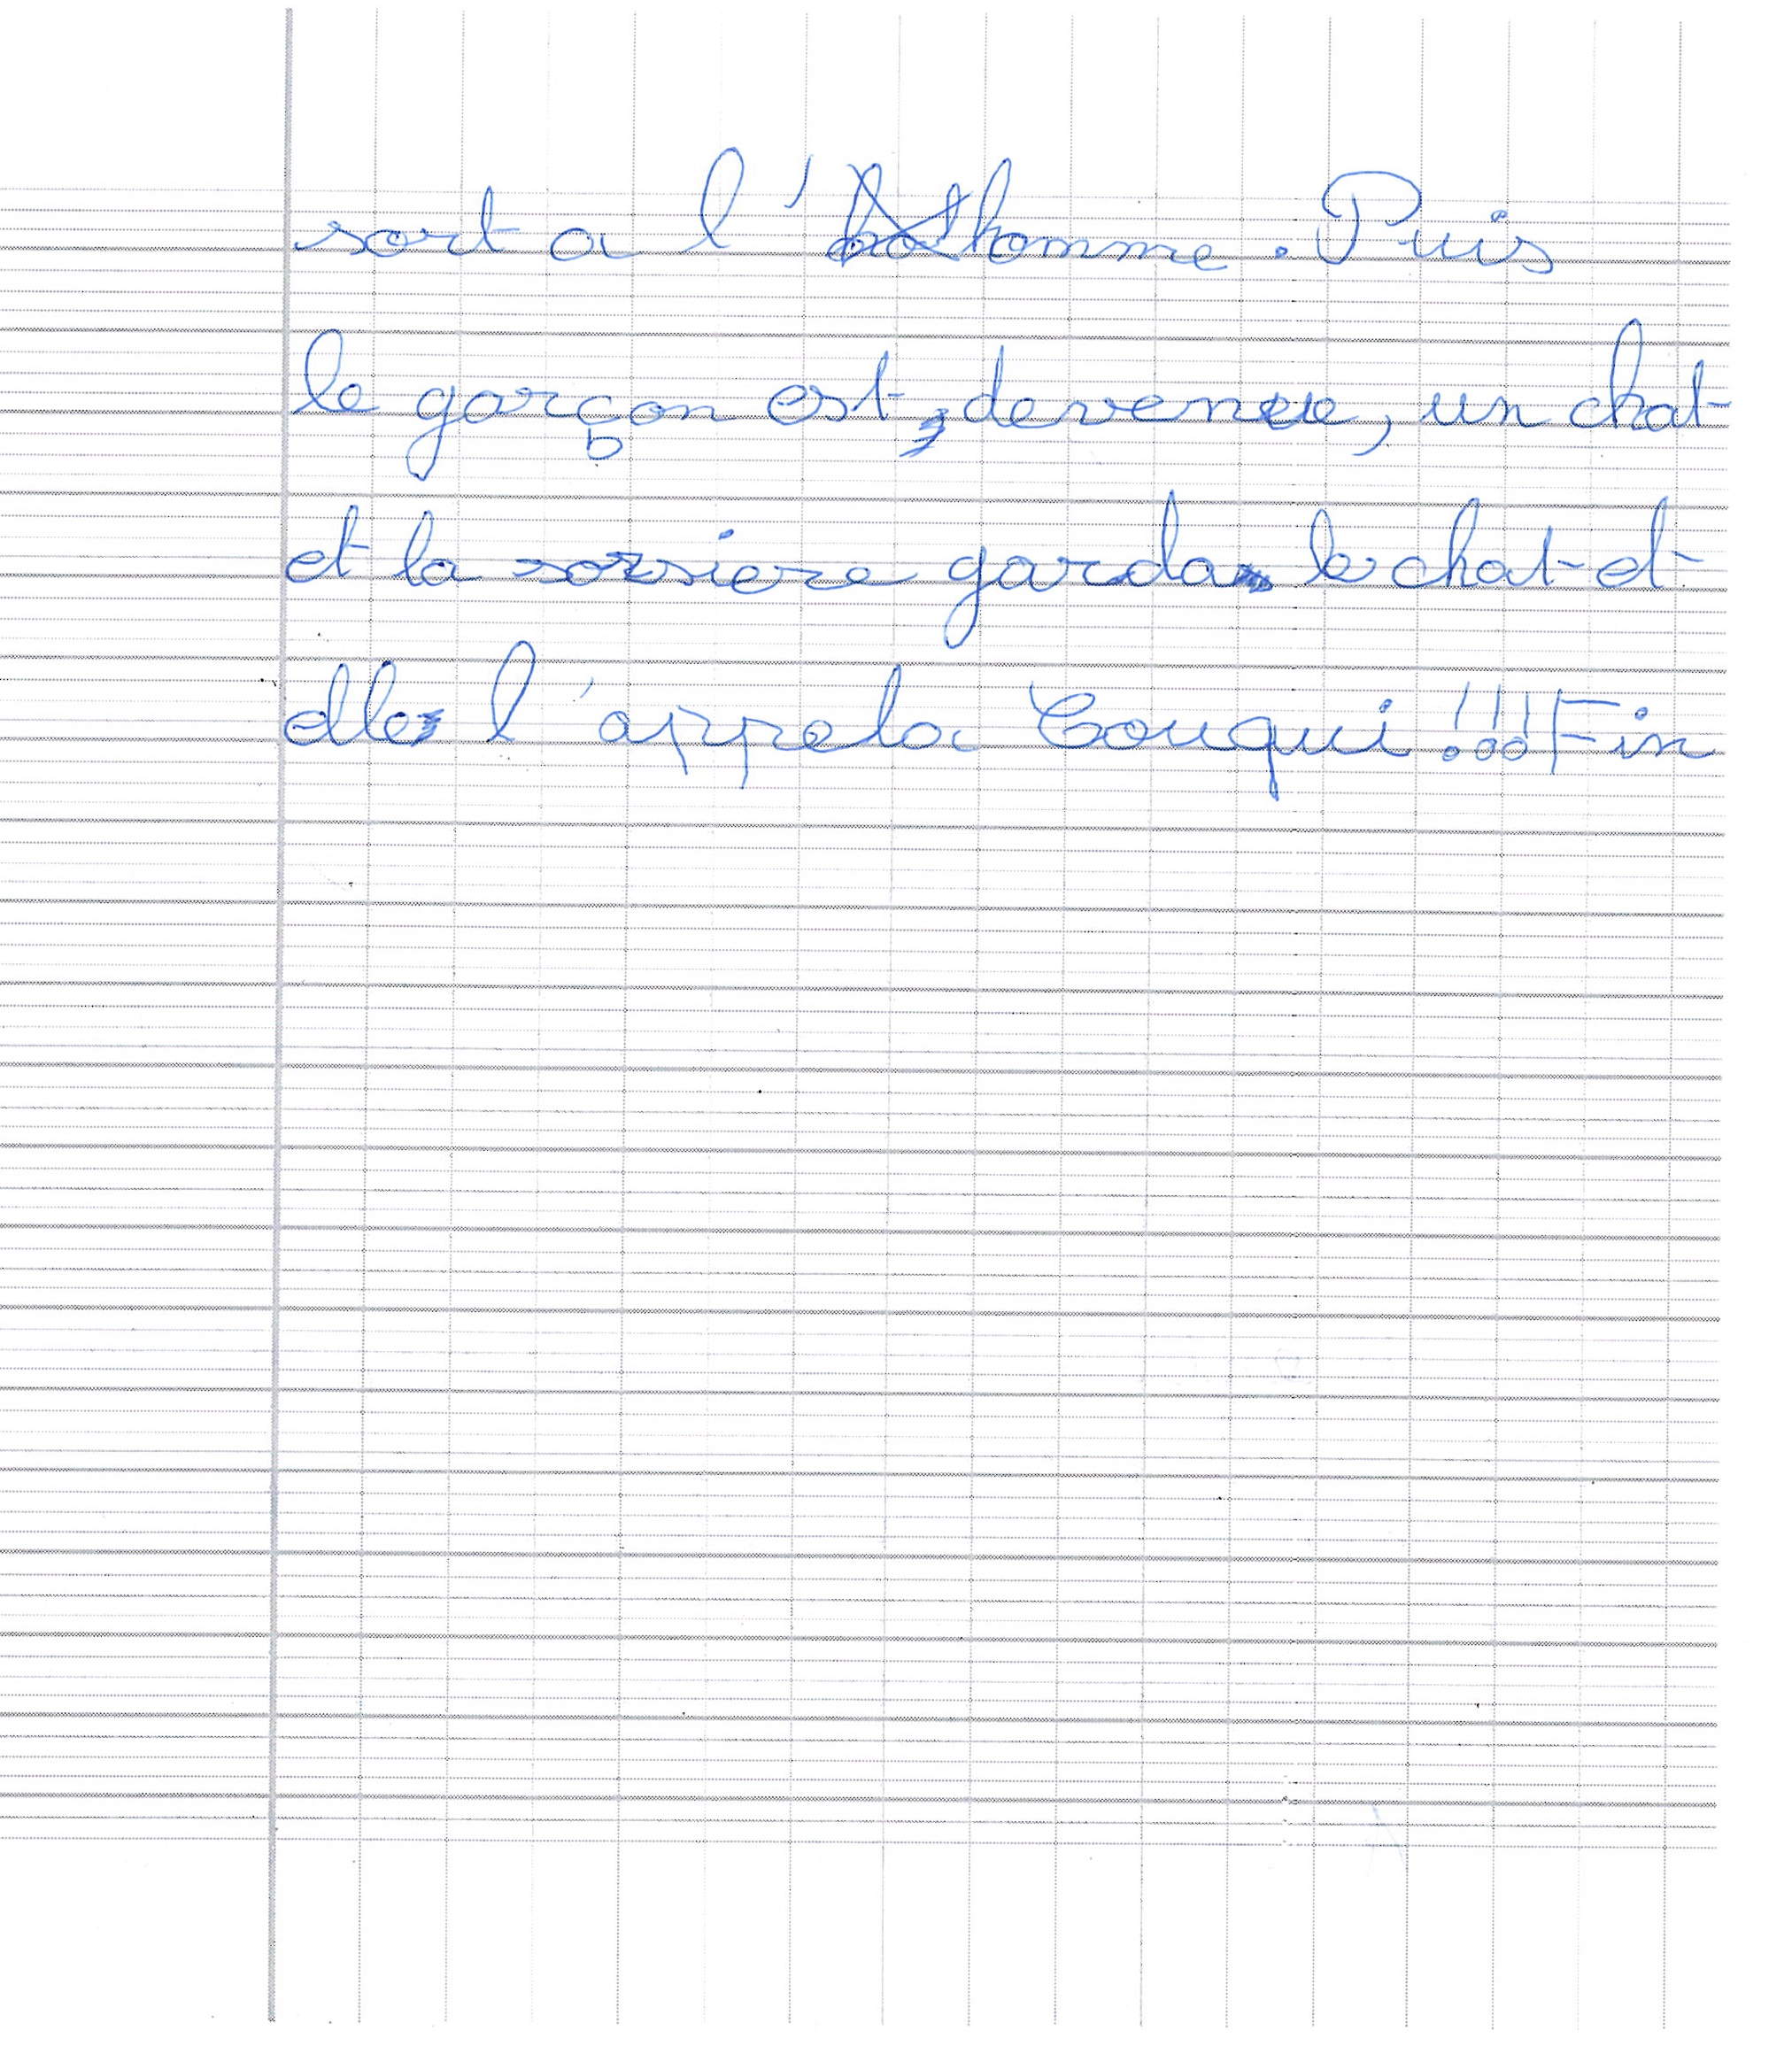 sort a l'homme. Puis
le garçon est devenue, un chat
et la sorsiere garda le chat et
elle l'appela Couqui !!! Fin